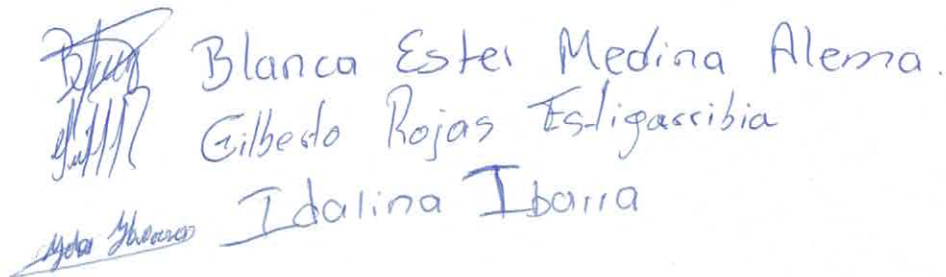 Blanca Ester Medina Alema.
Gilberto Rojas Estigarribia
Idalina Ibarra